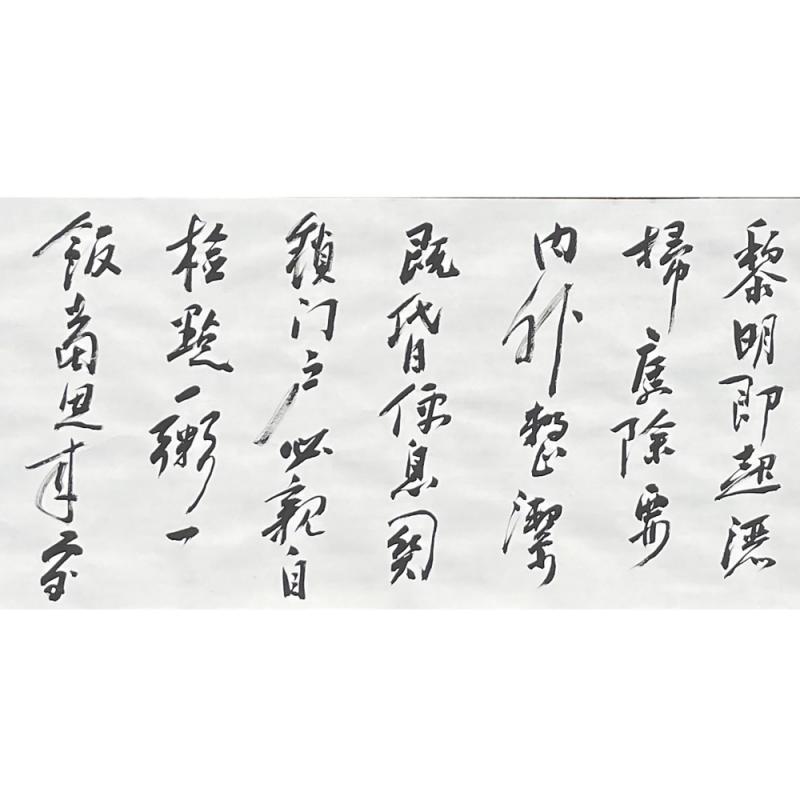 黎明即起灑
掃庭除要
内外整潔
既昏便息関
鎖门户必親自
檢點一粥一
飯當思来處